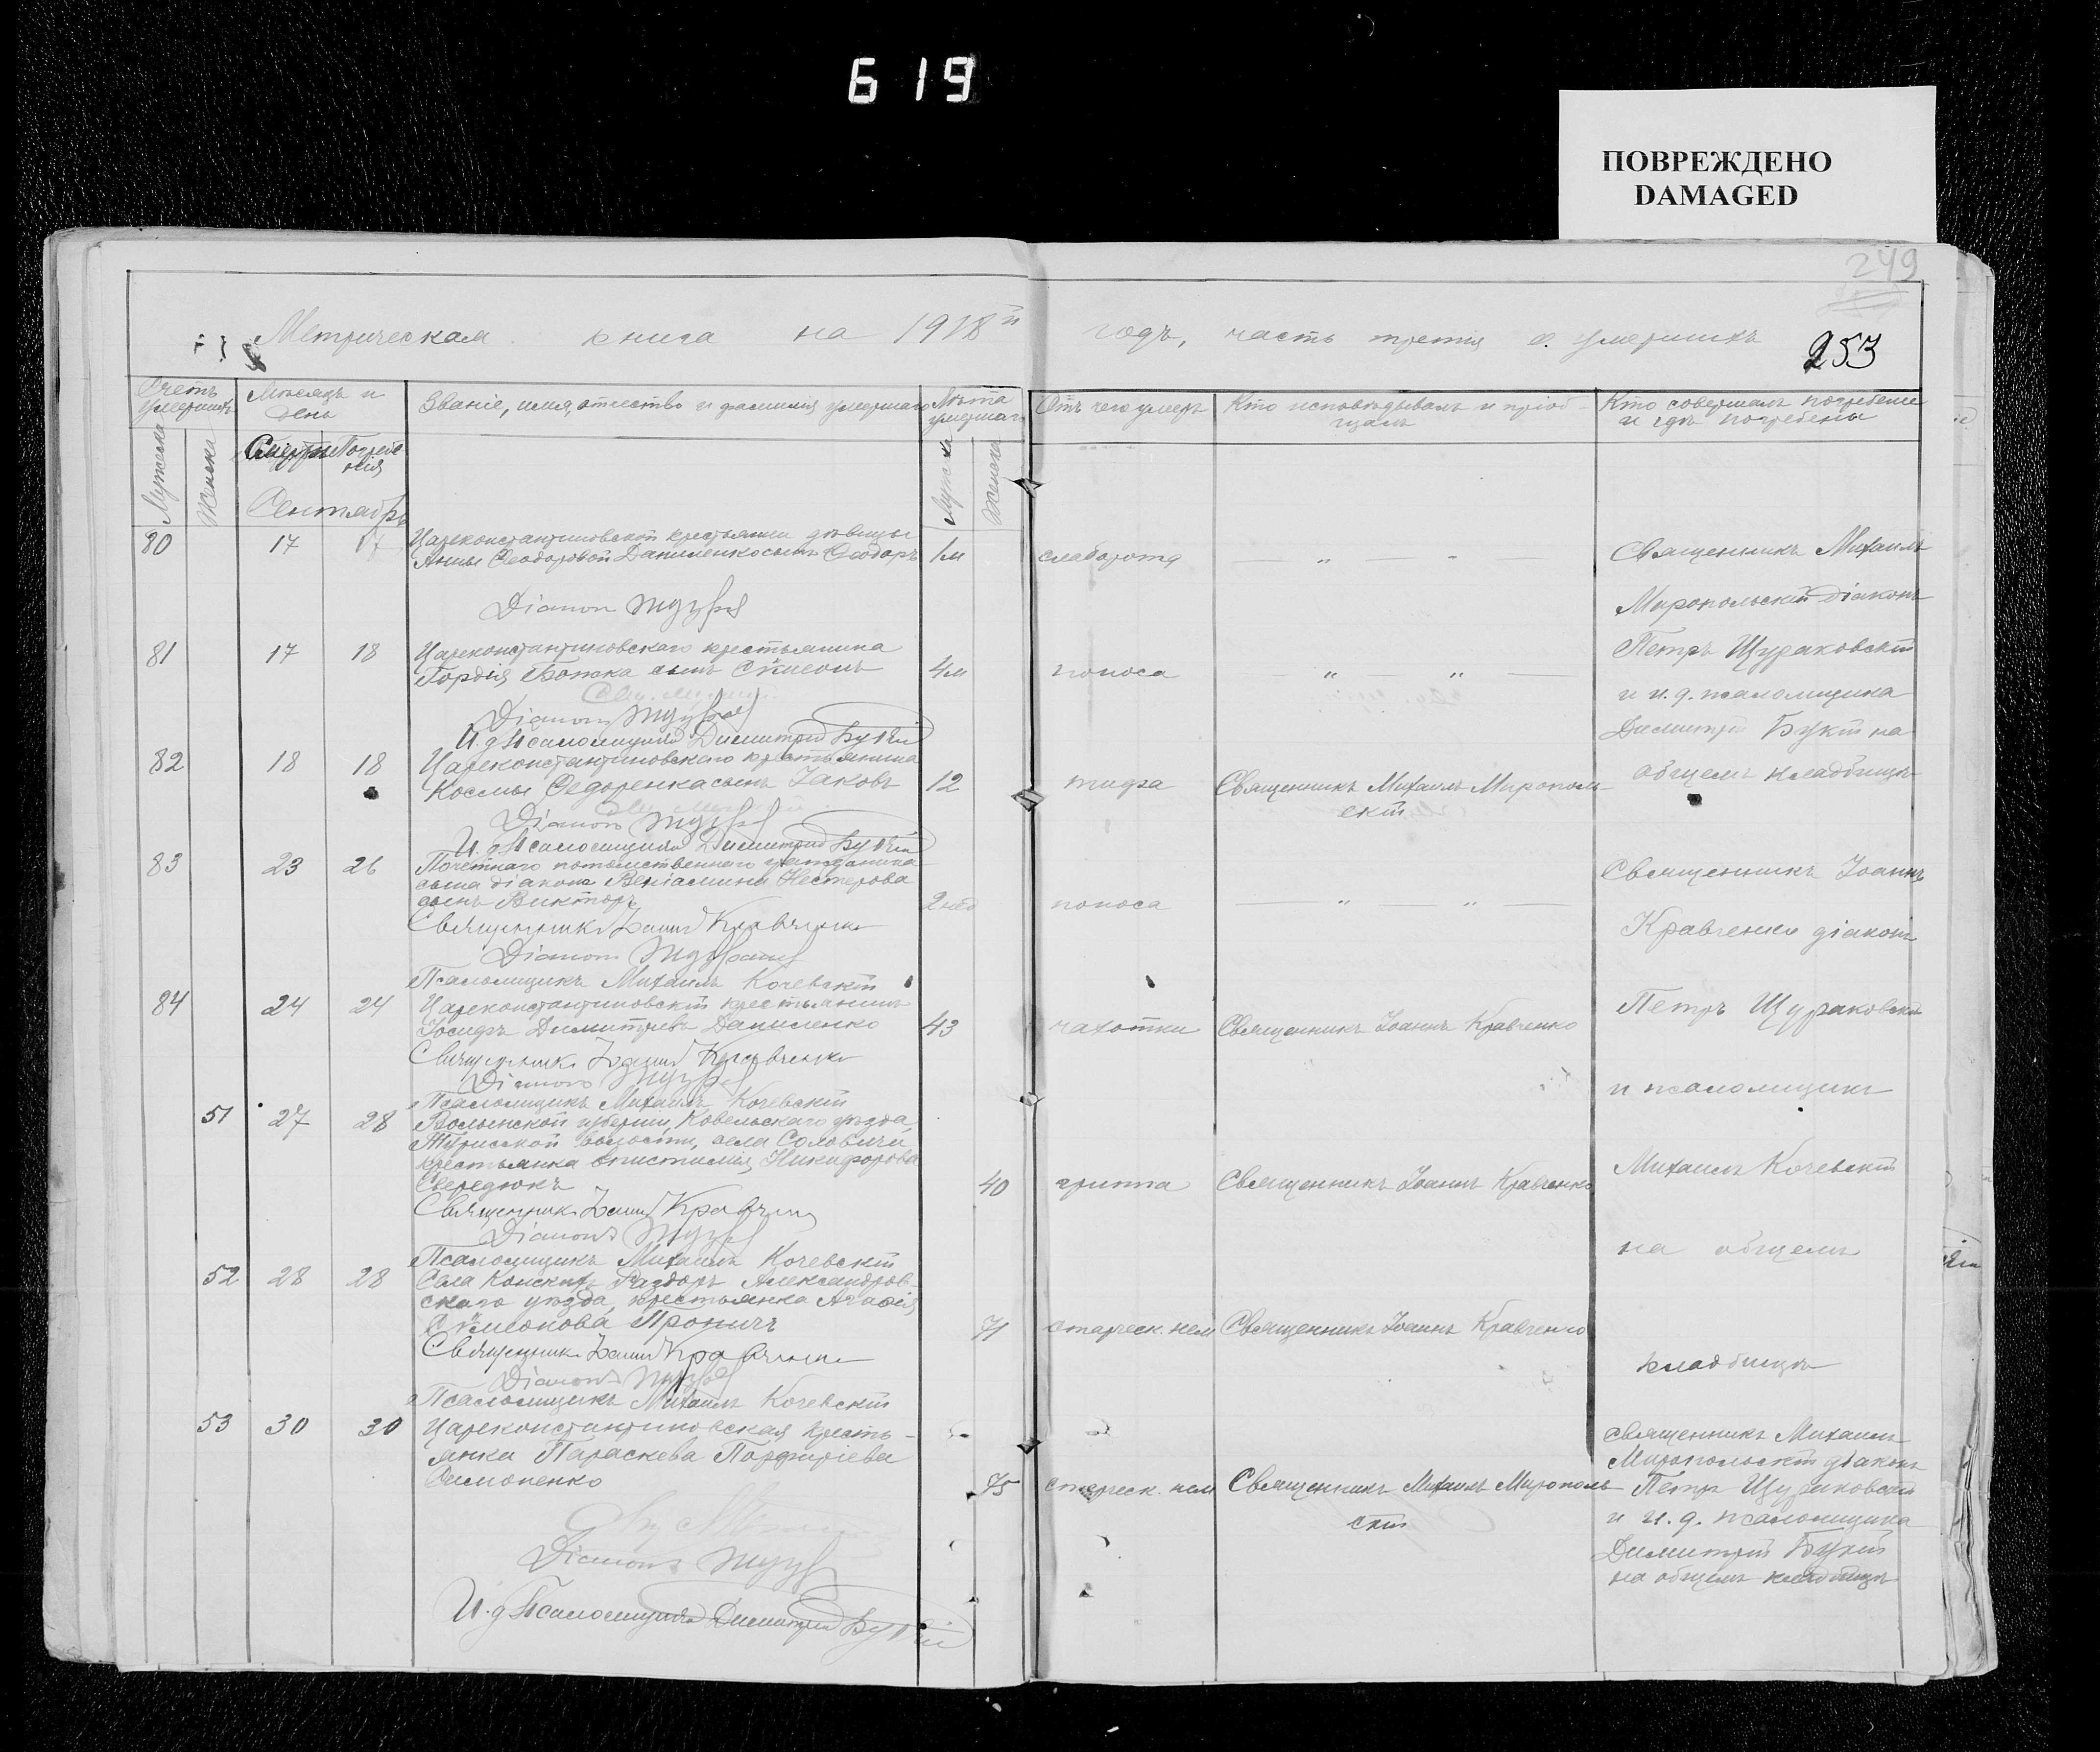 619
ПОВРЕЖДЕНО
DAMAGED
249
253
Метрическая книга на 1918й годъ, часть третія о умершихъ
Счетъ умершихъ
Мужеска
Женска
Мѣсяцъ и день
Смерти
Погребенія
Званіе, имя, отчество и фамилія умершаго
Лѣта умершаго
Мужска
Женска
Отъ чего умеръ
Кто исповѣдывалъ и пріобщалъ
Кто совершалъ погребеніе и гдѣ погребены
Сентябрь
80 17 17 Цареконстантиновской крестьянки дѣвицы
Анны Ѳеодоровой Даниленко сынъ Ѳеодоръ 1м слабота — „ — „ —
Діаконъ
81 17 18 Цареконстантиновскаго крестьянина
Гордія Божка сынъ Сѵмеонъ 4м поноса — „ — „ —
Діаконъ
И. д. Псаломщика Димитрій Буткій
82 18 18 Цареконстантиновскаго крестьянина
Космы Ѳедоренка сынъ Іаковъ 12 тифа Священникъ Михаилъ Миропольскій
Діаконъ
И. д. Псаломщика Димитрій Буткій
Священникъ Михаилъ
Миропольскій діаконъ
Петръ Щураковскій
и и. д. псаломщика
Димитрій на
общемъ кладбищѣ
83 23 26 Почетнаго потомственнаго гражданина
сына діакона Веніамина Нестерова
сынъ Викторъ 2 нед поноса — „ — „ —
Священникъ Іоаннъ Кравченко
Діаконъ
Псаломщикъ Михаилъ Кочевскій
84 24 24 Цареконстантиновскій крестьянинъ
Іосифъ Димитріевъ Даниленко 43 чахотки Священникъ Іоаннъ Кравченко
Священникъ Іоаннъ Кравченко
Діаконъ
Псаломщикъ Михаилъ Кочевскій
51 27 28 Волынской губерніи, Ковельскаго уѣзда,
волости, села Соловичи
крестьянка Никифорова
Свередюкъ 40 гриппа Священникъ Іоаннъ Кравченко
Священникъ Іоаннъ Кравченко
Діаконъ
Псаломщикъ Михаилъ Кочевскій
52 28 28 Села Конскихъ Раздоръ Александров-
скаго уѣзда, крестьянка Агафія
Сѵмеонова Проничъ 71 старческ. нем Священникъ Іоаннъ Кравченко
Священникъ Іоаннъ Кравченко
Діаконъ
Псаломщикъ Михаилъ Кочевскій
Священникъ Іоаннъ
Кравченко діаконъ
Петръ Щураковскій
и псаломщикъ
Михаилъ Кочевскій
на общемъ
кладбищѣ
53 30 30 Цареконстантиновская кресть-
янка Параскева Порфиріева
Симоненко 75 старческ. нем Священникъ Михаилъ Миропольскій
Діаконъ
И. д. Псаломщика Димитрій Буткій
священникъ Михаилъ
Миропольскій діаконъ
Петръ Щураковскій
и и. д. псаломщика
Димитрій
на общемъ кладбищѣ